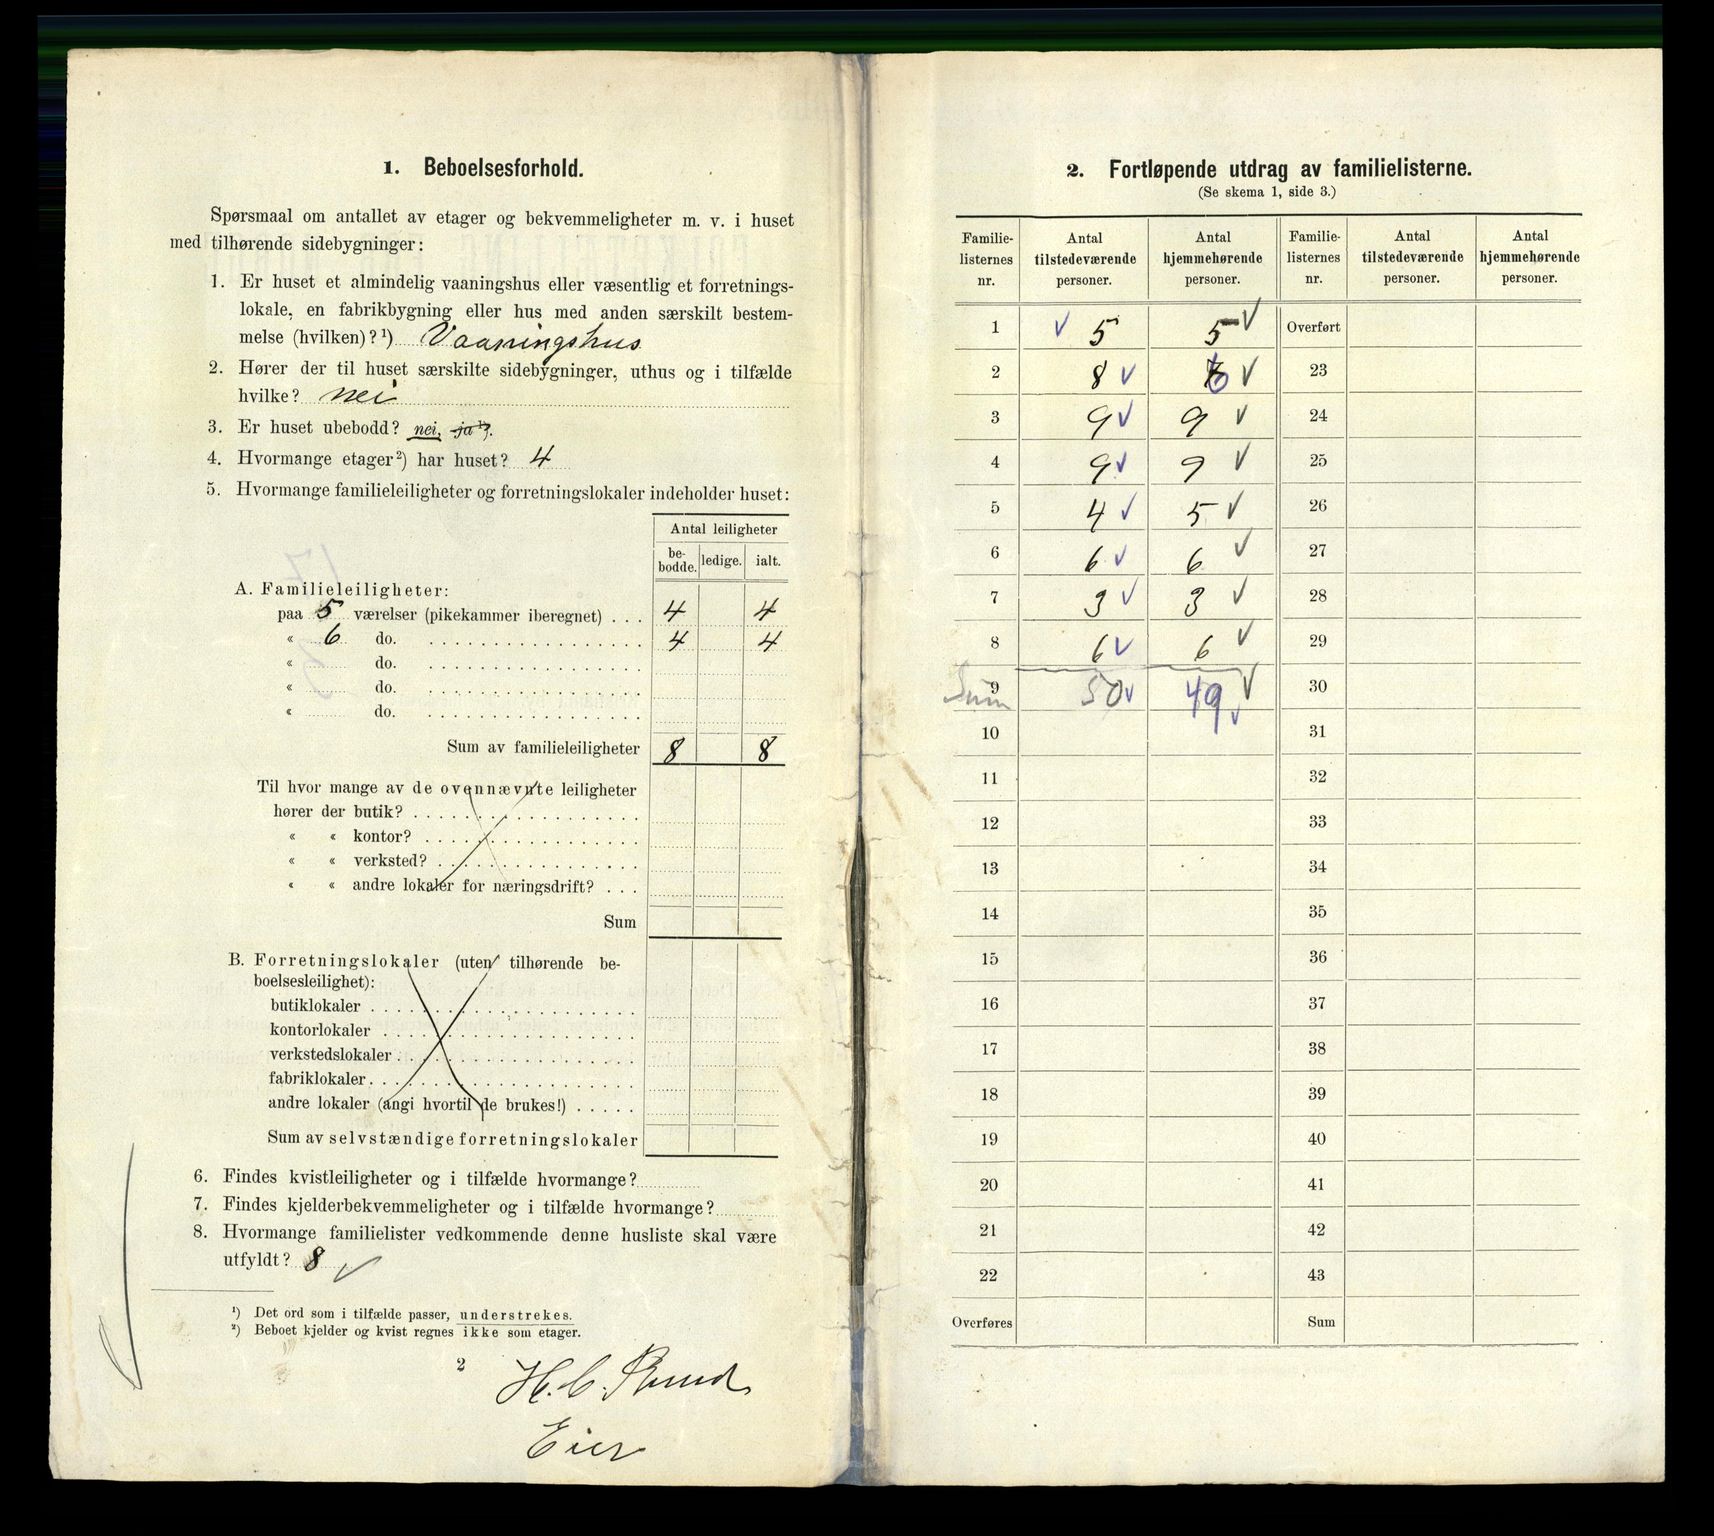 1. Beboelsesforhold.
Spørsmaal om antallet av etager og bekvemmeligheter m. v. i huset
med tilhørende sidebygninger:
1. Er huset et almindelig vaaningshus eller væsentlig et forretnings-
lokale, en fabrikbygning eller hus med anden særskilt bestem-
melse (hvilken)?¹) Vaaningshus
2. Hører der til huset særskilte sidebygninger, uthus og i tilfælde
hvilke? nei
3. Er huset ubebodd? nei, ja¹).
4. Hvormange etager²) har huset? 4
5. Hvormange familieleiligheter og forretningslokaler indeholder huset:
Antal leiligheter
be-
bodde. ledige. ialt.
A. Familieleiligheter:
paa 5 værelser (pikekammer iberegnet) . . . 4 4
« 6 do. 4 4
« do.
« do.
« do.
Sum av familieleiligheter 8 8
Til hvor mange av de ovennævnte leiligheter
hører der butik?
« « kontor?
« « verksted?
« « andre lokaler for næringsdrift? . . .
Sum
B. Forretningslokaler (uten tilhørende be-
boelsesleilighet):
butiklokaler
kontorlokaler
verkstedslokaler
fabriklokaler
andre lokaler (angi hvortil de brukes!)
Sum av selvstændige forretningslokaler
6. Findes kvistleiligheter og i tilfælde hvormange?
7. Findes kjelderbekvemmeligheter og i tilfælde hvormange?
8. Hvormange familielister vedkommende denne husliste skal være
utfyldt? 8 ✓
¹) Det ord som i tilfælde passer, understrekes.
²) Beboet kjelder og kvist regnes ikke som etager.
2
H. C.
Eier
2. Fortløpende utdrag av familielisterne.
(Se skema 1, side 3.)
Familie-
listernes
nr. Antal
tilstedeværende
personer. Antal
hjemmehørende
personer. Familie-
listernes
nr. Antal
tilstedeværende
personer. Antal
hjemmehørende
personer.
1 ✓ 5 5 ✓ Overført
2 8 ✓ 6 ✓ 23
3 9 ✓ 9 ✓ 24
4 9 ✓ 9 ✓ 25
5 4 ✓ 5 ✓ 26
6 6 ✓ 6 ✓ 27
7 3 ✓ 3 ✓ 28
8 6 ✓ 6 ✓ 29
9 Sum 50 ✓ 49 ✓ ✓ 30
10 31
11 32
12 33
13 34
14 35
15 36
16 37
17 38
18 39
19 40
20 41
21 42
22 43
Overføres Sum